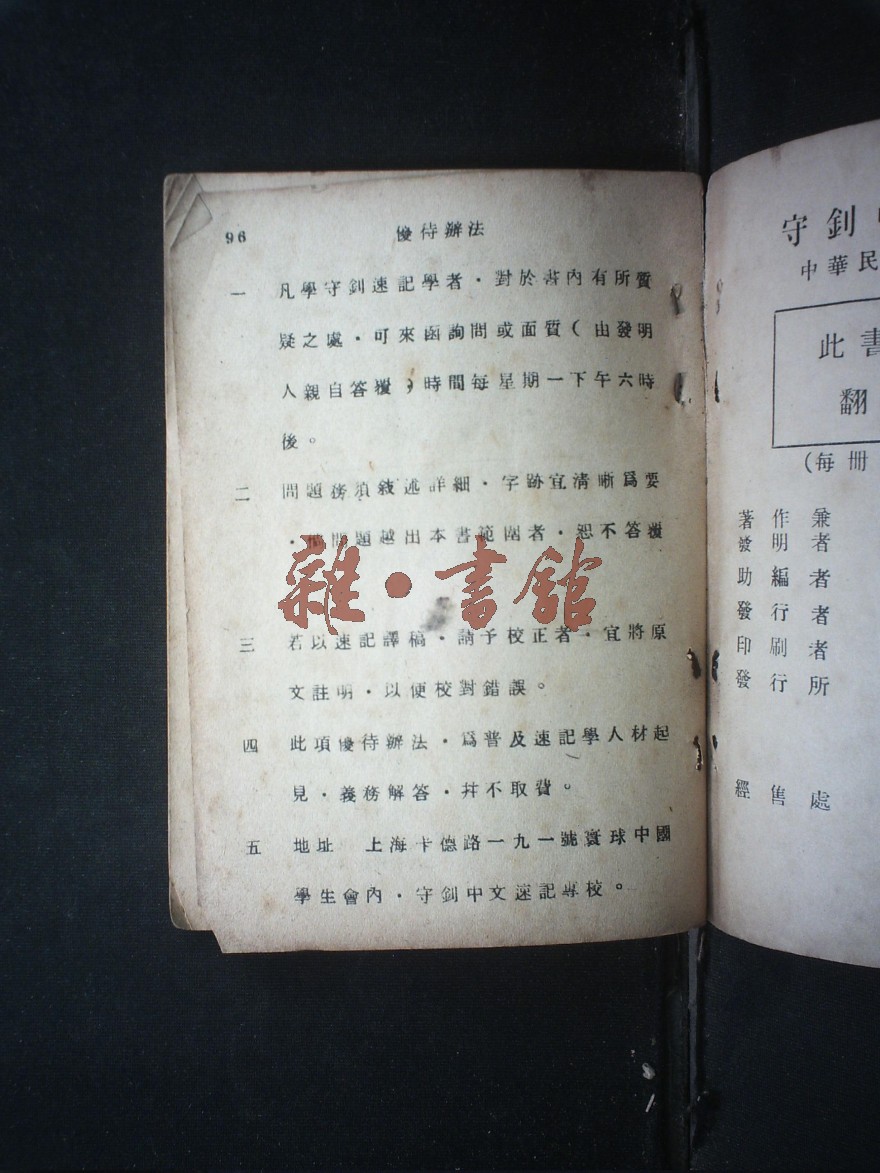 96 優待辦法
一 凡學守釗速記學者・對於書內有所質
疑之處・可來函詢問或面質(由發明
人親自答覆)時間每星期一下午六時
後。
二 問題務須敍述詳細・字跡宜清晰爲要
・問題越出本書範圍者・恕不答覆
雜・書館
三 若以速記譯稿・請予校正者・宜將原
文註明・以便校對錯誤。
四 此項優待辦法・爲普及速記學人材起
見・義務解答・幷不取費。
五 地址 上海卡德路一九一號寰球中國
學生會內・守釗中文速記專校。
守釗
中華民
此書
翻
(每冊
著作兼
發明者
助編者
發行者
印刷者
發行所
經售處